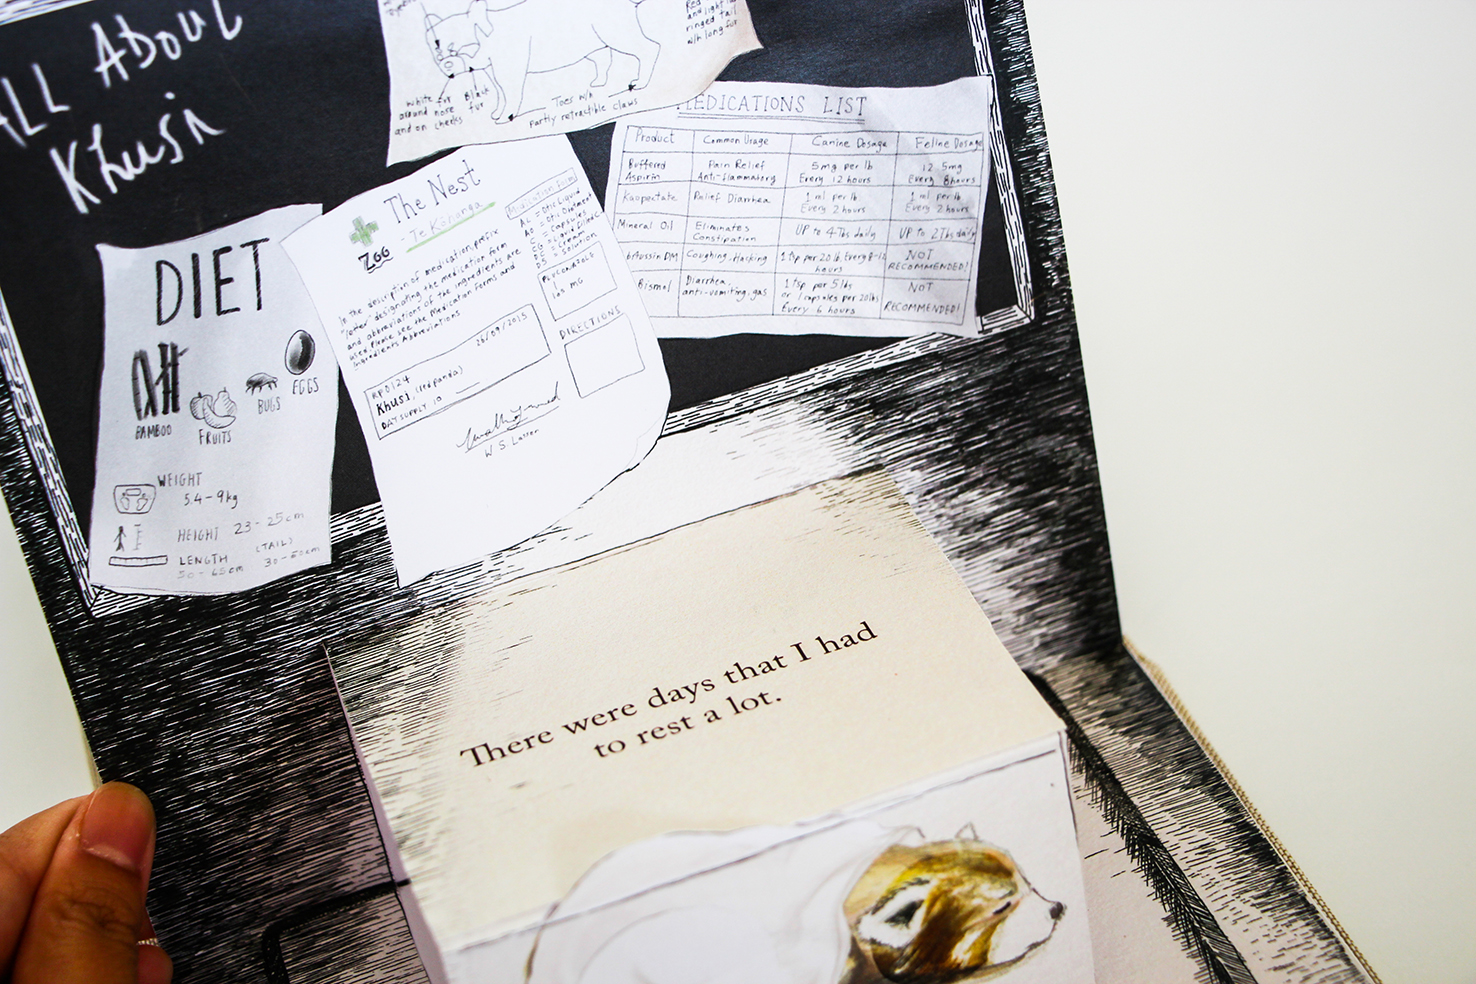 ALL ABOUT
Khusi
White fur
around nose
and on cheeks
Black
fur
Toes with
partly retractible claws
Red
and light
ringed tail
with long fur
MEDICATIONS LIST
Product Common Usage Canine Dosage Feline Dosage
Buffered Aspirin Pain Relief Anti-Ilammatory 5mg per lb Every 12 hours 12.5mg Every 8hours
Kaopectate Relief Diarrhea 1 ml per lb Every 2 hours 1 ml per lb Every 2 hours
Mineral Oil Eliminates Constipation UP to 4 Tbs daily UP to 2 Tbs daily
DM Coughing, Hacking 1 tsp per 20 lb, Every 8-12 hours NOT RECOMMENDED!
Bismol Diarrhea, anti-vomiting, gas 1 tsp per 5 lbs or 1 capsules per 20lbs Every 6 hours NOT RECOMMENDED!
The Nest
- Te Kōhanga
ZOO
In the description of medication, prefix
letter designating the medication form
and abbreviations of the ingredients are
used. Please see the Medication Forms and
Ingredients Abbreviations
Medication Forms
AL = Otic Liquid
AO = Otic Ointment
C = Capsules
= Cream
= Solution
26/09/2015
RP0124
Khusi (red panda)
DAY SUPPLY 10
100 MG
DIRECTIONS
W S Lasten
DIET
BAMBOO
FRUITS
BUGS
EGGS
WEIGHT
5.4 - 9kg
HEIGHT 23 - 25cm
LENGTH (TAIL)
50 - 65cm 30 - 50cm
There were days that I had
to rest a lot.